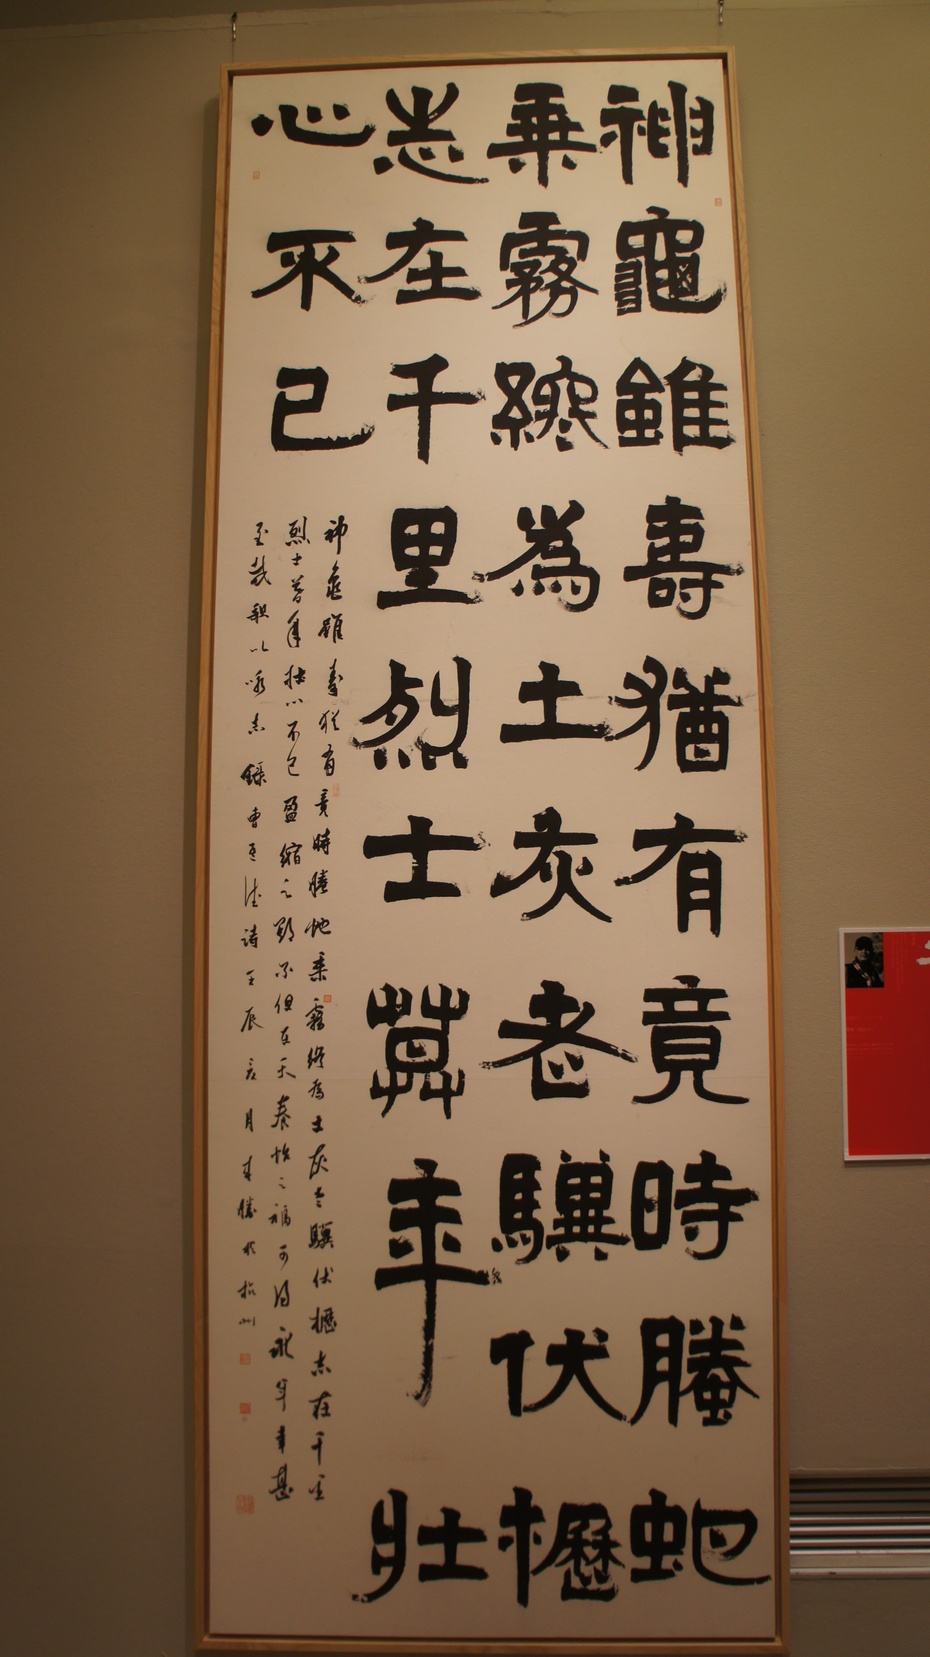 神龜雖壽猶有竟時螣虵
乗霧終為土灰老驥伏櫪
志在千里烈士莫年壯
心不已
神龜雖壽猶有竟時螣虵乗霧終為土灰老驥伏櫪志在千里
烈士暮年壯心不已盈縮之期不但在天養怡之福可得永年幸甚
至哉歌以咏志錄曹孟德詩壬辰亥月於杭州